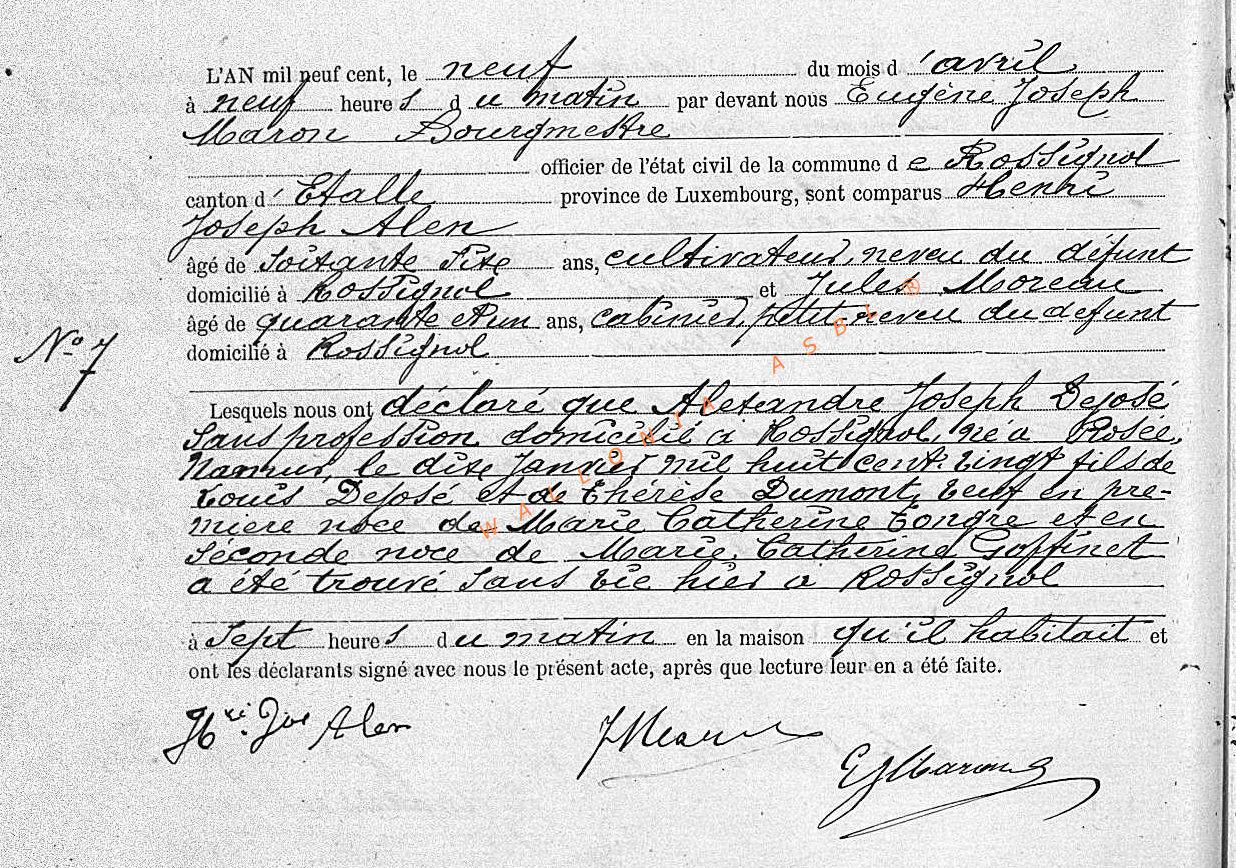 L'AN mil neuf cent, le neuf du mois d'avril
à neuf heures du matin par devant nous Eugène Joseph
Maron Bourgmestre
officier de l'état civil de la commune de Rossignol
canton d'Etalle province de Luxembourg, sont comparus Henri
Joseph Alen
âgé de soixante six ans, cultivateur, neveu du défunt
domicilié à Rossignol et Jules Moreau
âgé de quarante et un ans, petit neveu du defunt
domicilié à Rossignol
No 7
Lesquels nous ont déclaré que Alexandre Joseph Dejosé
sans profession domicilié à Rossignol, né à Rosée,
Namur, le dix janvier mil huit cent vingt fils de
Louis Dejosé et de Thérèse Dumont, veuf en pre-
mière noce de Marie Catherine Tongre et en
séconde noce de Marie Catherine Goffinet
a été trouvé sans vie hier à Rossignol
à sept heures du matin en la maison qu'il habitait et
ont les déclarants signé avec nous le présent acte, après que lecture leur en a été faite.
Hri Jos Alen
JMoreau
EJMaron
WALLONIA ASBL ®